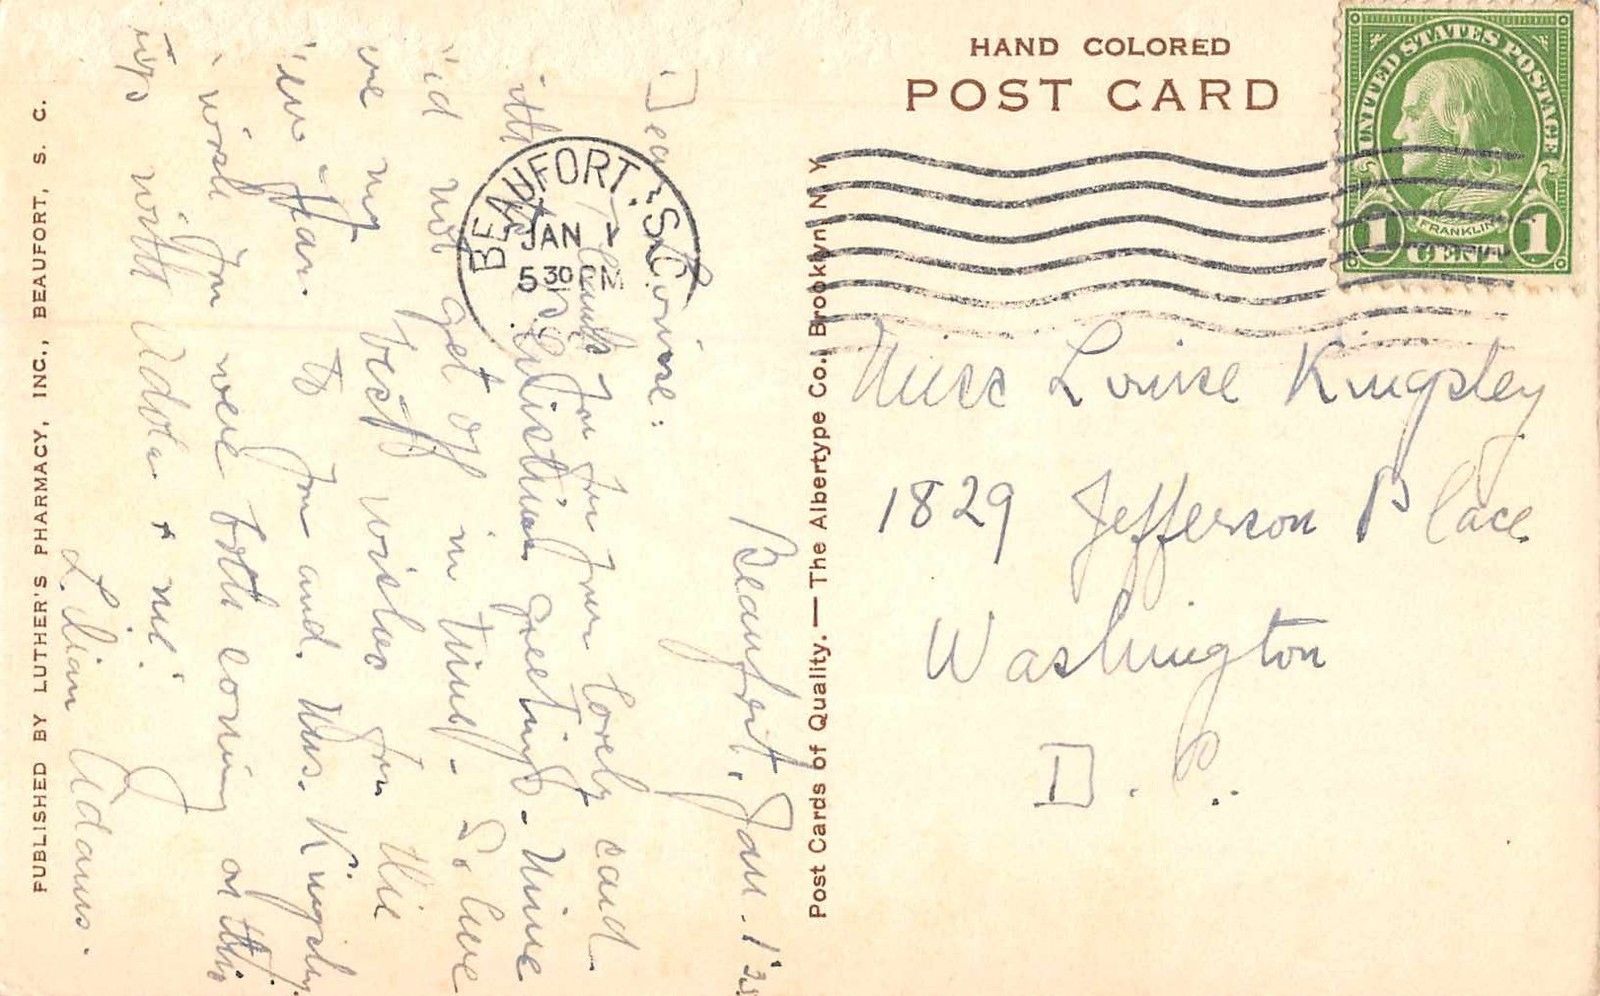 HAND COLORED
POST CARD
UNITED STATES POSTAGE
FRANKLIN
1 CENT 1
BEAUFORT. S.C.
JAN 1
5 30 PM
Miss Louise Kingsley
1829 Jefferson Place
Washington
D. C.
Post Cards of Quality. — The Albertype Co., Brooklyn, N. Y.
Beaufort, Jan. 1
Dear Louise:
Thanks for your lovely card
ith Christmas greetings. Mine
id not get off in time. So here
are my best wishes for the
ew Year. to you and. Mrs. Kingsley.
wish you were both coming on this
with Adola + me.
Lilian Adams.
PUBLISHED BY LUTHER'S PHARMACY, INC., BEAUFORT, S. C.